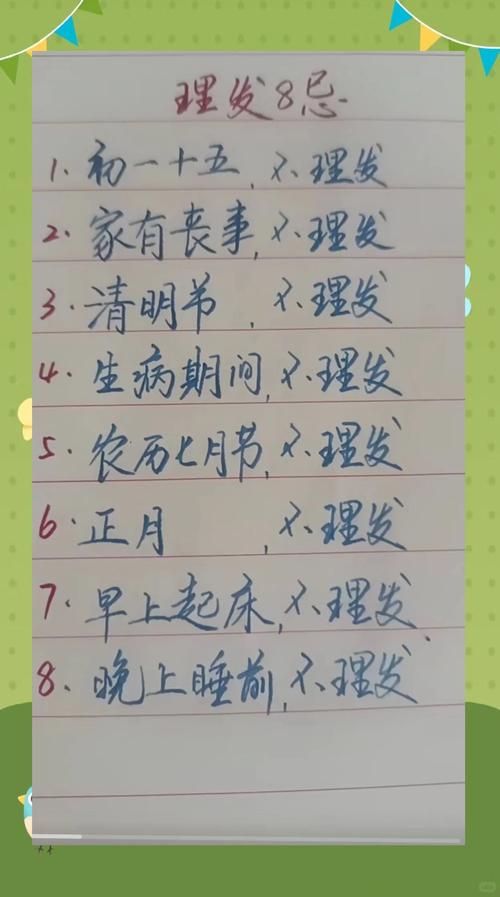 理发8忌
1. 初一十五,不理发
2. 家有丧事,不理发
3. 清明节,不理发
4. 生病期间,不理发
5. 农历七月节,不理发
6. 正月,不理发
7. 早上起床,不理发
8. 晚上睡前,不理发